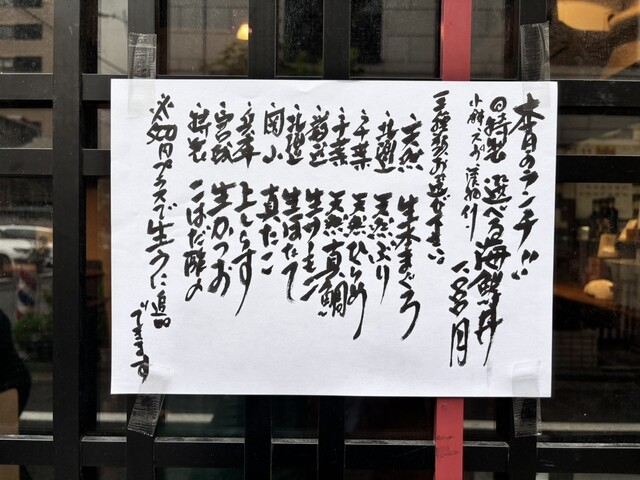 本日のランチ!!
日特製 選べる海鮮丼
小鉢・みそ汁・漬物付
三種類お選び下さい
・天然 生本まぐろ
・北海道 天然ぶり
・千葉 天然ひらめ
・千葉 天然真鯛
生サーモン
・北海道 生ほたて
・岡山 真たこ
・兵庫 上しらす
・宮城 生かつお
・特製 こはだ酢〆
プラスで生うに追加
できます